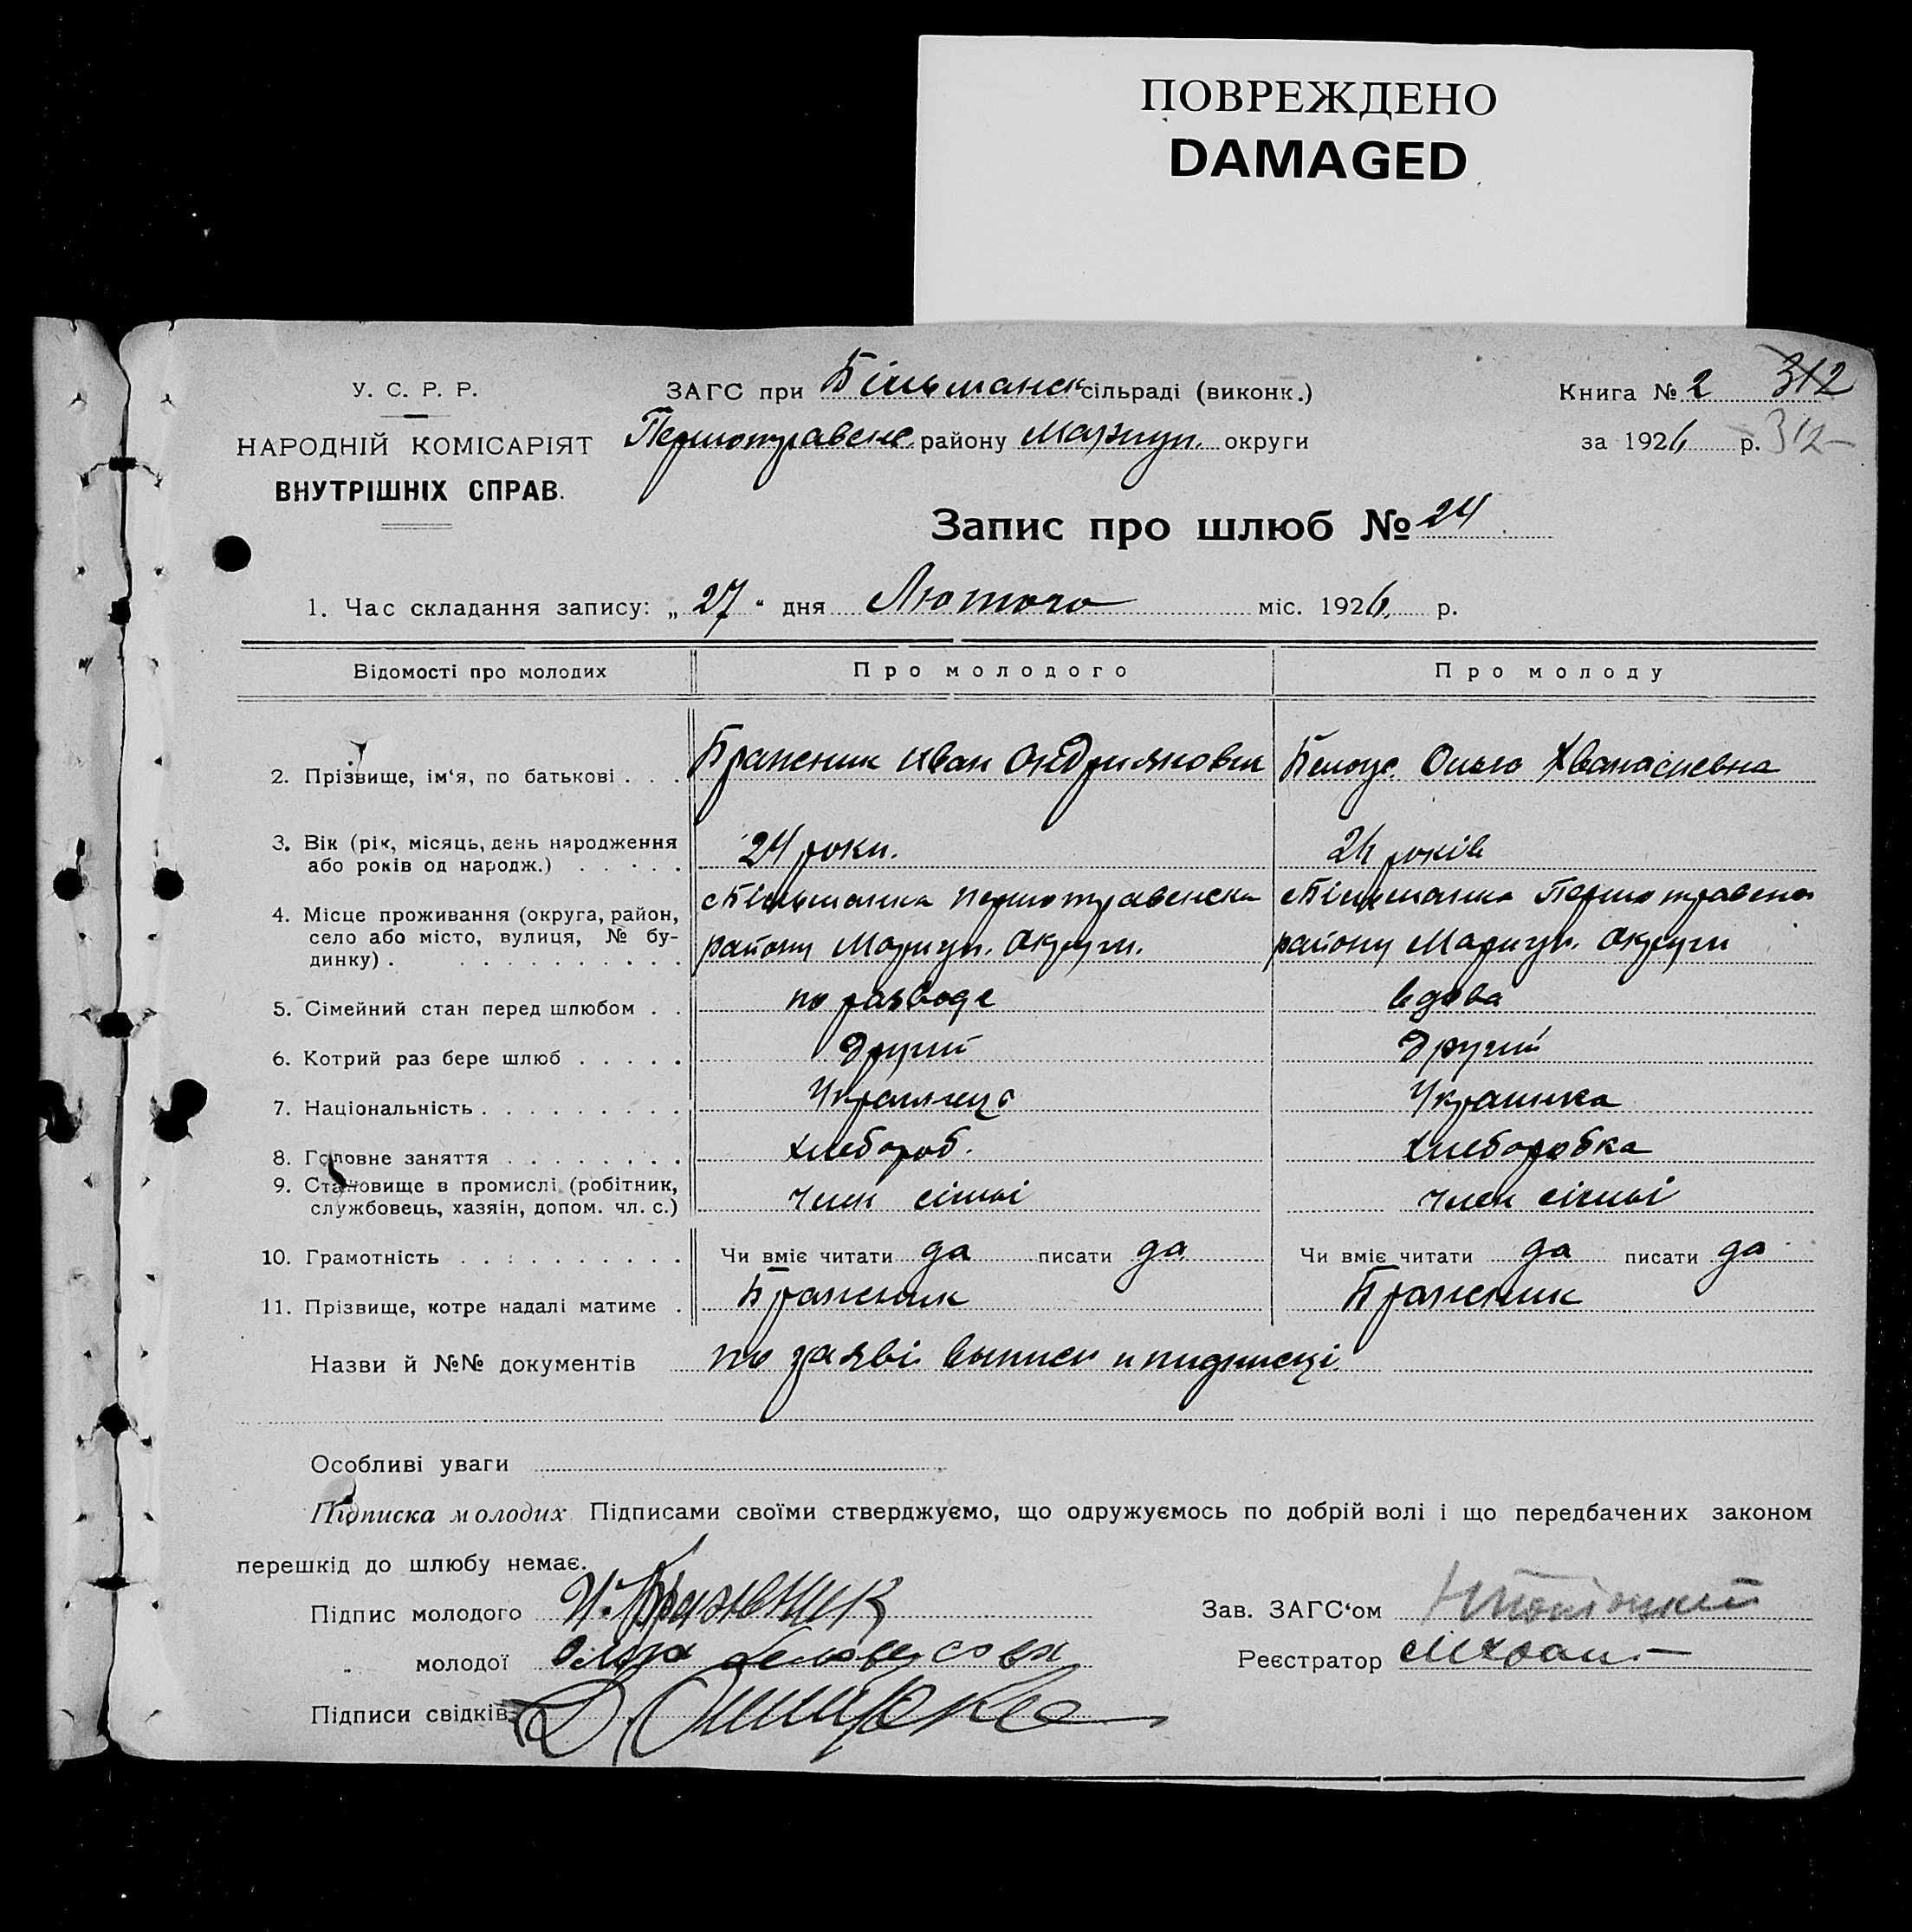 ПОВРЕЖДЕНО
DAMAGED
У. С. Р. Р.
НАРОДНІЙ КОМІСАРІЯТ
ВНУТРІШНІХ СПРАВ.
ЗАГС при Більманск сільраді (виконк.)
Першотравенс. району Мариуп. округи
Книга № 2 312
за 1926 р. 312
Запис про шлюб № 24
1. Час складання запису: „ 27 “ дня Лютого міс. 1926 р.
Відомості про молодих
Про молодого
Про молоду
2. Прізвище, ім‘я, по батькові . . .
Бражник Иван Андриянович
Белоус Ольга Хванасиевна
3. Вік (рік, місяць, день народження
або років од народж.) . . . . .
24 роки.
26 років
4. Місце проживання (округа, район,
село або місто, вулиця, № бу-
динку) . . . . . . . . . . .
с Більманка Першотравенска
району Мариуп. Округи.
с Більманка Першотравенс
району Мариуп. Округи
5. Сімейний стан перед шлюбом . .
по разводе
вдова
6. Котрий раз бере шлюб . . . . .
Другий
Другий
7. Національність . . . . . . . . .
Украинец
Украинка
8. Головне заняття . . . . . . . .
хлебороб.
хлеборобка
9. Становище в промислі (робітник,
службовець, хазяін, допом. чл. с.)
член сімьі
член сімьі
10. Грамотність . . . . . . . . . .
Чи вміє читати да писати да
Чи вміє читати да писати да
11. Прізвище, котре надалі матиме .
Бражник
Бражник
Назви й №№ документів по заяві выписи и пидписці
Особливі уваги
Підписка молодих Підписами своїми стверджуємо, що одружуємось по добрій волі і що передбачених законом
перешкід до шлюбу немає.
Підпис молодого И. Бражник
Зав. ЗАГС‘ом
„ молодої Олга
Реєстратор
Підписи свідків